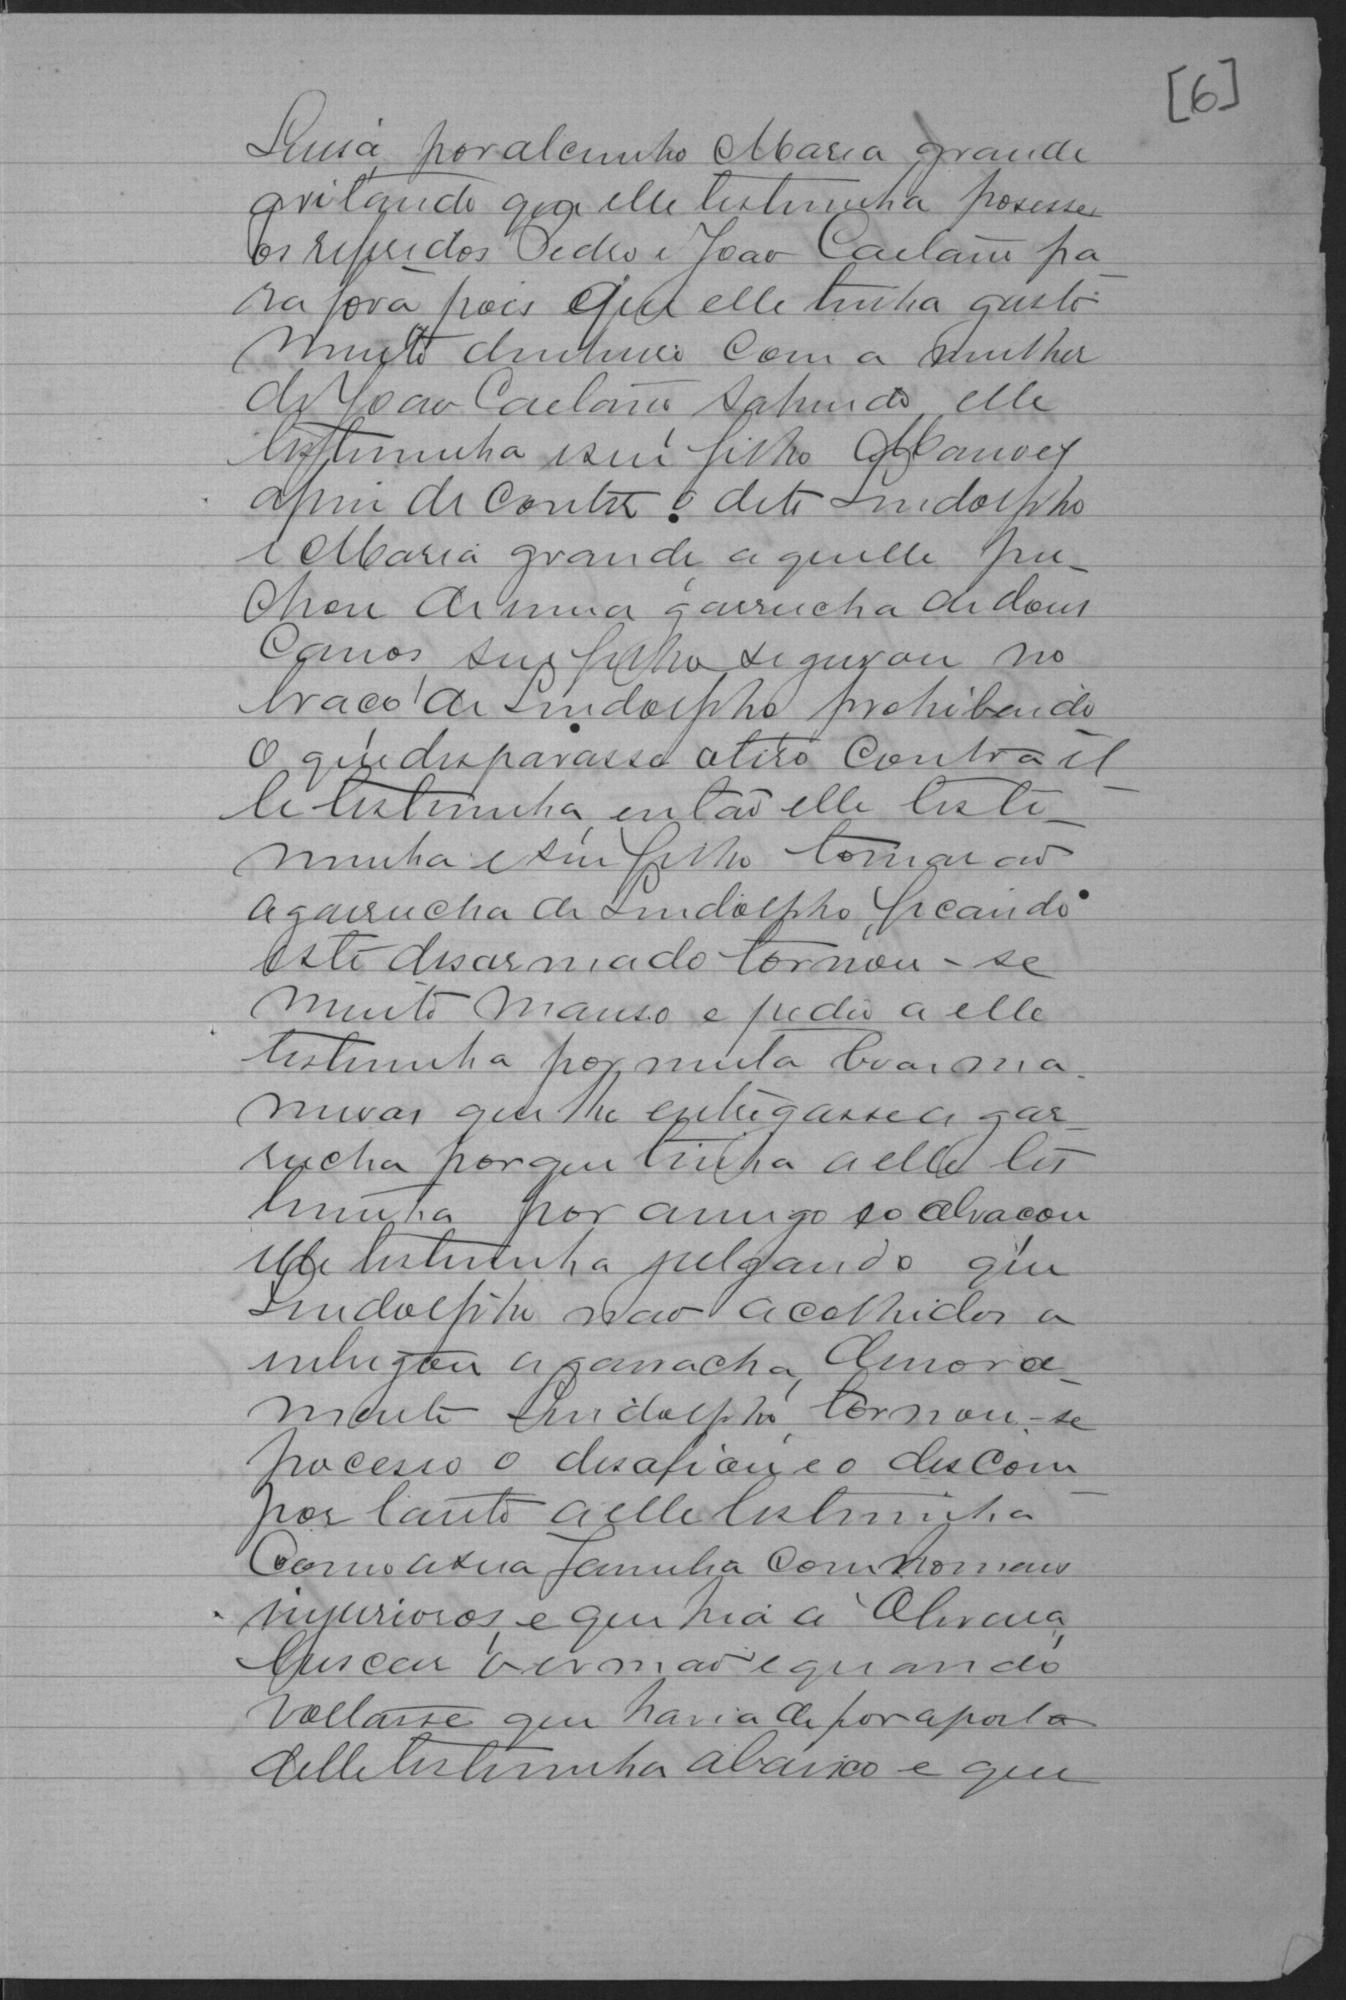 [6]
Luisa, por alcunho Maria grande
gritando que elle testimunha posesse
os referidos Pedro e Joao Caetano pa
ra fora pois que elle tinha gasto
muito dinheiro com a mulher
de Joao Caetano, sahindo elle
testimunha e seu filho Manoel
afim de conter o dito Lindolpho
e Maria grande, aquelle pu-
chou de uma garrucha de dous
canos, seu filho segurou no
braço de Lindolpho prohibendo
o que disparasse o tiro contra el
le testimunha, entaõ elle teste-
munha e seu filho tomaraõ
a garrucha de Lindolpho, ficando
este desarmado tornou-se
muito manso e pedio a elle
testimunha por muita boas ma-
neiras que lhe entregasse a gar-
rucha porque tinha a elle tes
timunha por amigo e o abraçou
elle testimunha julgando que
Lindolpho nao
entregou a garrucha,
mente Lindolpho, tornou-se
pocesso o desafiou e o descom
por tanto a elle testimunha
como a sua familia com nomes
injuriosos, e que hia a Oliveira,
buscar o irmaõ e quando
voltasse que havia de por a porta
delle testimunha abaixo e que